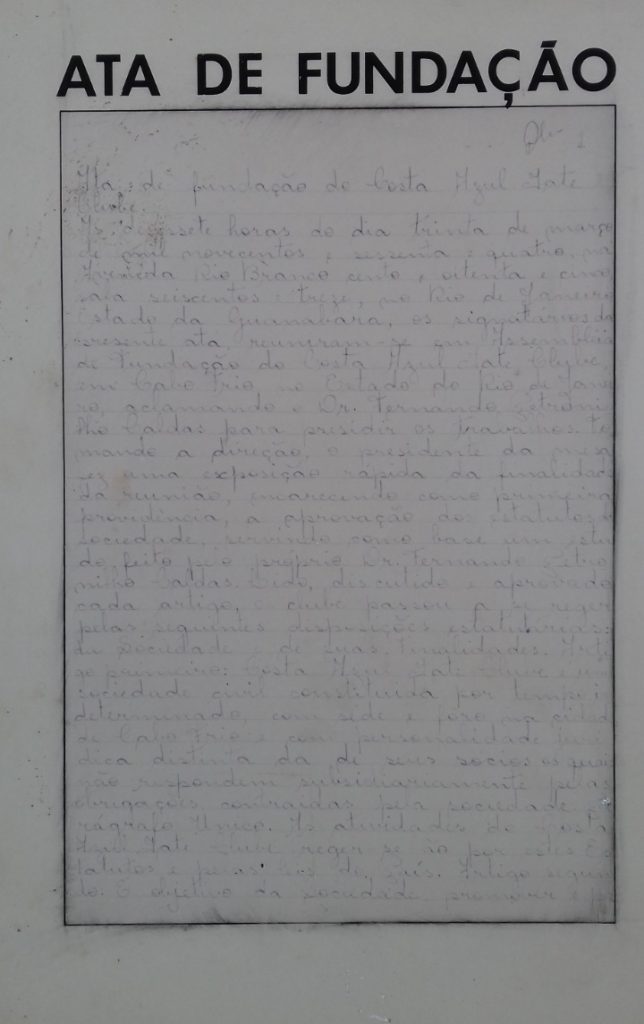 ATA DE FUNDAÇÃO
Ata de fundação do Costa Azul Iate
Clube
As dezessete horas do dia trinta de março
de mil novecentos e sessenta e quatro, na
Avenida Rio Branco cento e oitenta e cinco
sala seiscentos e treze, no Rio de Janeiro
Estado da Guanabara, os signatários da
presente ata reuniram-se em Assembléia
de Fundação do Costa Azul Iate Clube,
em Cabo Frio, no Estado do Rio de Janei
ro, aclamando o Dr. Fernando Petroni
lho Caldas para presidir os trabalhos. To
mando a direção, o presidente da mesa
fez uma exposição rápida da finalidade
da reunião, encarecendo como primeira
providência, a aprovação dos estatutos da
sociedade, servindo como base um estu
do feito pelo próprio Dr. Fernando Petro
nilho Caldas. Lido, discutido e aprovado
cada artigo, o clube passou a se reger
pelas seguintes disposições estatutárias:
da Sociedade e de suas finalidades. Arti
go primeiro: Costa Azul Iate Clube é uma
sociedade civil constituída por tempo in
determinado, com sede e foro na cidade
de Cabo Frio e com personalidade jurí
dica distinta da de seus sócios os quais
não respondem subsidiariamente pelas
obrigações contraídas pela sociedade. Pa
rágrafo Único. As atividades do Costa
Azul Iate Clube reger-se-ão por estes Es
tatutos e pelas leis do País. Artigo segun
do. É objetivo da sociedade promover e